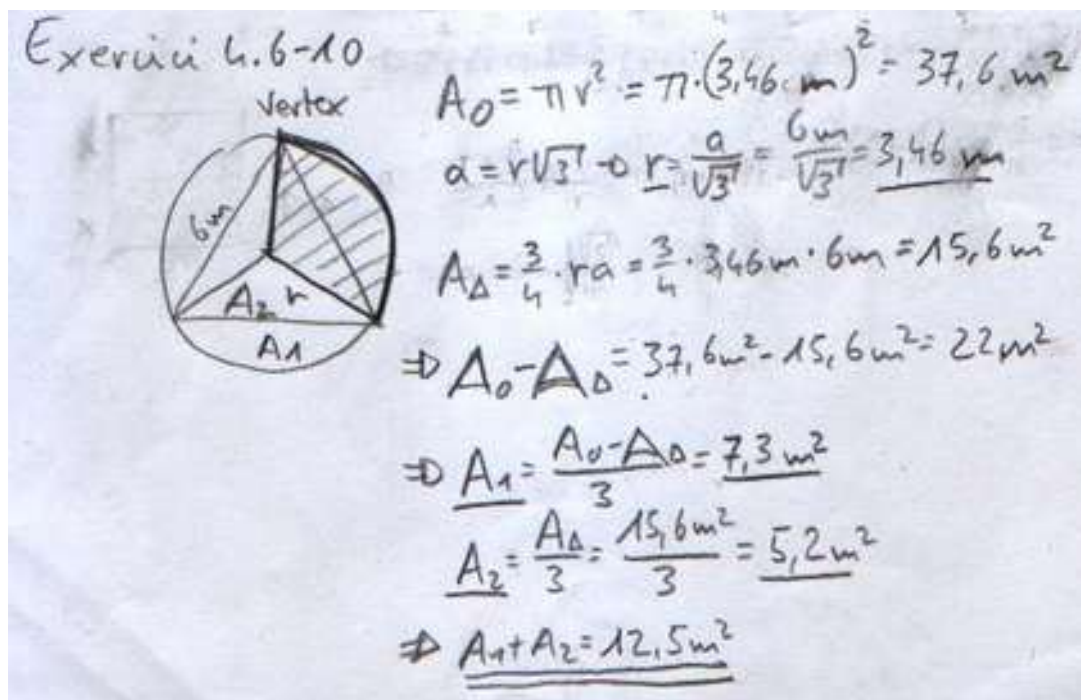 Exercici 4.6-10
Vertex
6m
A2 r
A1
AO = πr² = π·(3,46 m)² = 37,6 m²
a = r√3 → r = a/√3 = 6m/√3 = 3,46 m
AΔ = 3/4 · ra = 3/4 · 3,46m · 6m = 15,6m²
⇒ AO - AΔ = 37,6m² - 15,6m² = 22m²
⇒ A1 = (AO - AΔ)/3 = 7,3 m²
A2 = AΔ/3 = 15,6m²/3 = 5,2m²
⇒ A1 + A2 = 12,5m²